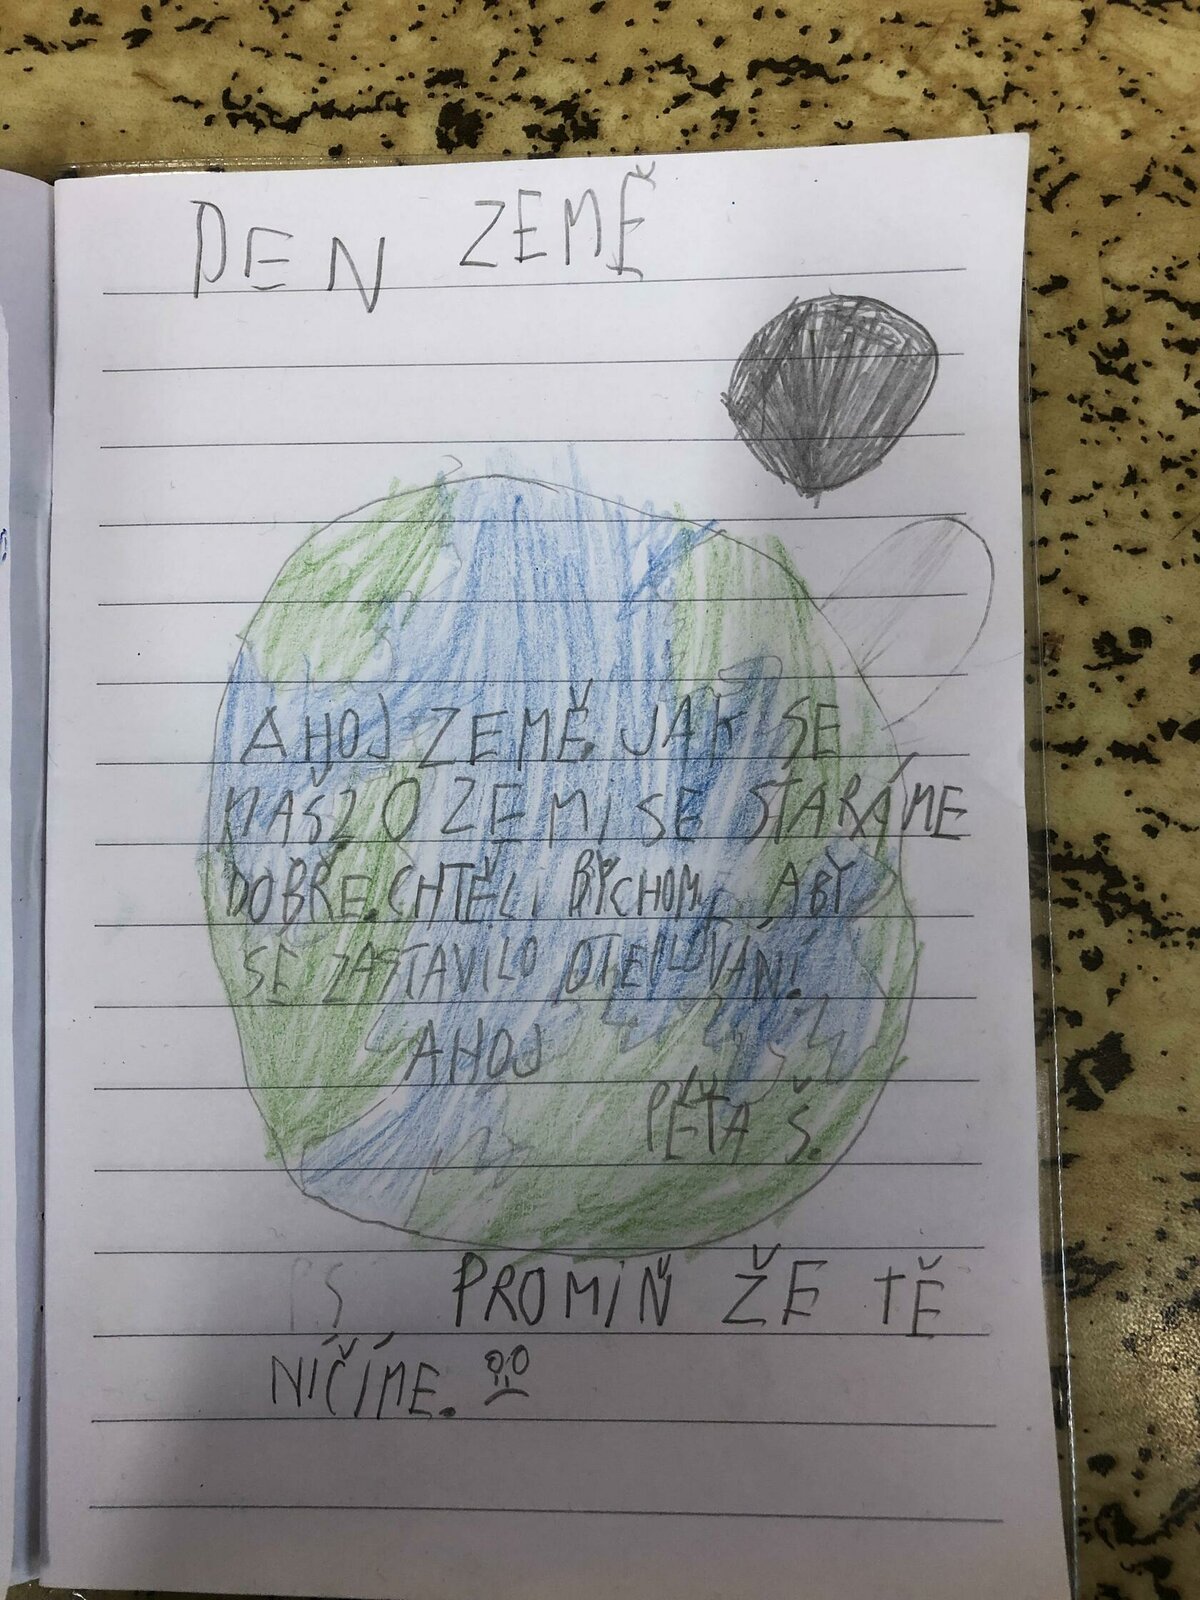 DEN ZEMĚ
AHOJ ZEMĚ. JAK SE
MÁŠ? O ZEMI SE STARÁME
DOBŘE. CHTĚLI BYCHOM, ABY
SE ZASTAVILO OTEVLOVÁNÍ.
AHOJ
PÉŤA Š.
PS PROMIŇ ŽE TĚ
NIČÍME.